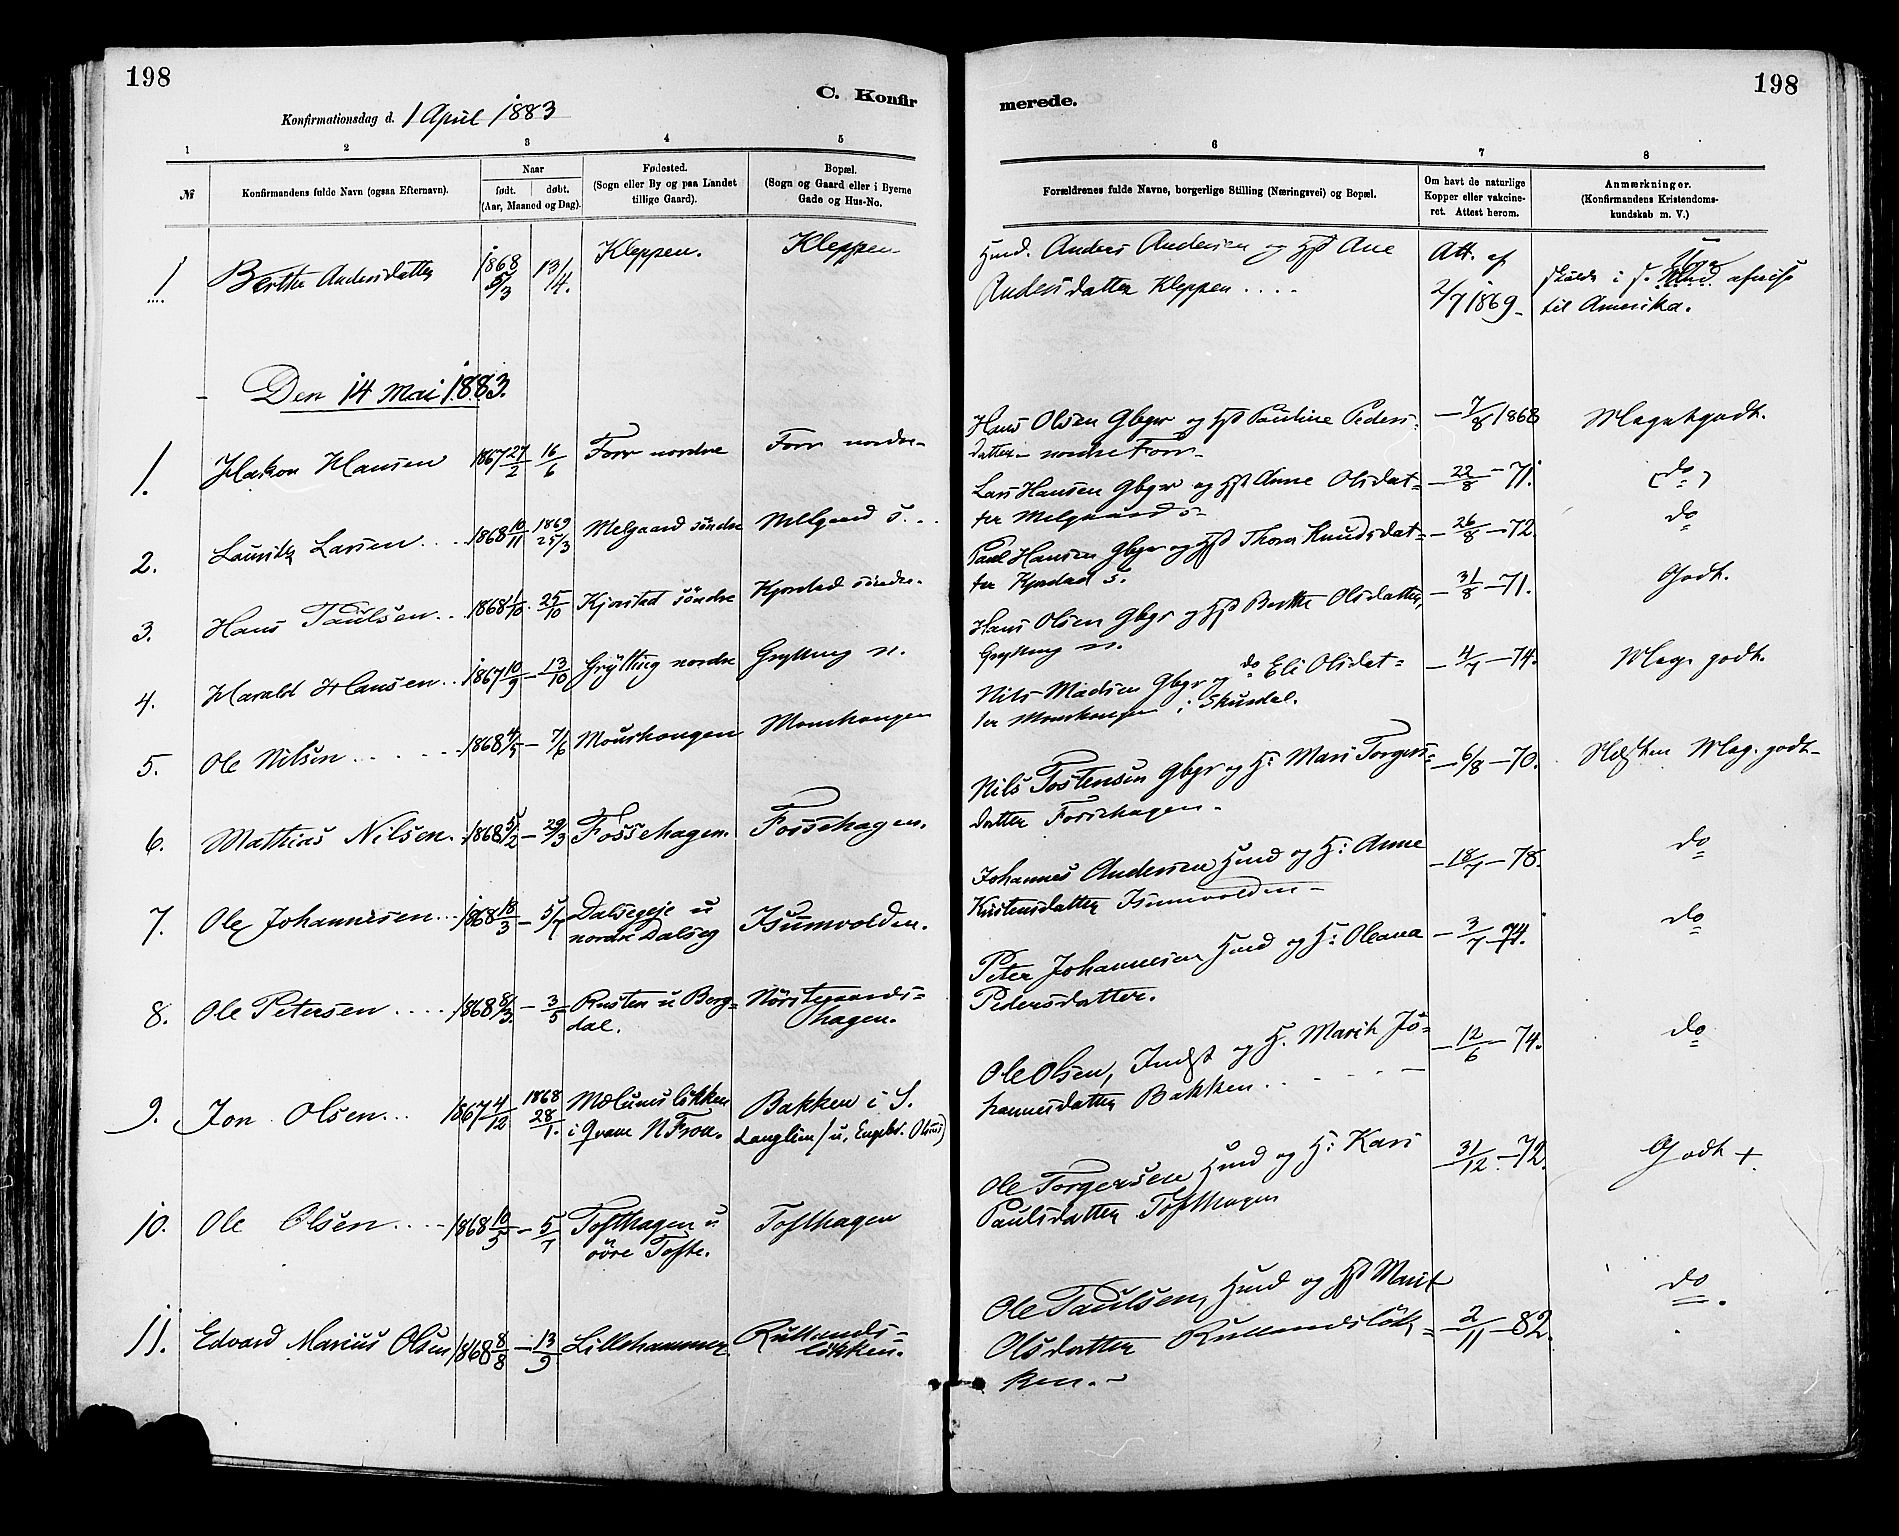 198
198
C. Konfir
merede.
Konfirmationsdag d. 1 April 1883
1 2 3 4 5 6 7 8
№
Konfirmandens fulde Navn (ogsaa Efternavn).
Naar
født. døbt.
(Aar, Maaned og Dag).
Fødested.
(Sogn eller By og paa Landet
tillige Gaard).
Bopæl.
(Sogn og Gaard eller i Byerne
Gade og Hus-No.
Forældrenes fulde Navne, borgerlige Stilling (Næringsvei) og Bopæl.
Om havt de naturlige
Kopper eller vakcine-
ret. Attest herom.
Anmærkninger.
(Konfirmandens Kristendoms-
kundskab m. V.)
1 Berthe Andersdatter 1868 5/3 13/4. Kleppen. Kleppen. Husd. Anders Andersen og Hst Ane
Andersdatter Kleppen ....
Att. af
2/7 1869.
i S. afreise
til Amerika.
Den 14 Mai 1883.
1. Hakon Hansen 1867 27/2 16/6 Forr nordre Forr nordre Hans Olsen Gbgr og Hst Pauline Peders-
datter nordre Forr. — 7/8 1868 Meget godt.
2. Lauritz Larsen ... 1868 10/11 1869 25/3 Melgaard søndre Melgaard s... Lars Hansen Gbgr og Hst Anne Olsdat-
ter Melgaard s. — 22/8 — 71. (do)
3. Hans Paulsen ... 1868 1/10. 25/10 Kjorstad søndre Kjorstad søndre. Paul Hansen Gbgr og Hst Thora Knudsdat-
ter Kjorstad s. — 26/8 — 72. do
4. Harald Hansen .. 1867 10/9 — 13/10 Grytting nordre Grytting n. Hans Olsen Gbgr og Hst Berthe Olsdatter,
Grytting n. — 31/8 — 71. Godt.
5. Ole Nilsen ..... 1868 4/5 — 7/6 Moushaugen Moushaugen Nils Madsen Gbgr og do Eli Olsdat-
ter Moushaugen i Skurdal. — 4/7 — 74. Meg. godt.
6. Mathias Nilsen. 1868 5/2 — 29/3 Fossehagen. Fossehagen. Nils Tostensen Gbgr og H: Mari Torgers-
datter Fossehagen. — 6/8 — 70. Næsten Meg. godt.
7. Ole Johannesen ... 1868 18/3 — 5/7 Dalsegeje u
nordre Dalseg Isumvolden. Johannes Andersen Husd og H: Anne
Kristensdatter Isumvolden — 18/7 — 78. do
8. Ole Petersen .... 1868 8/3. — 3/5 Rusten u Borg-
dal. Nörstegaards-
hagen. Peter Johannesen Husd og H: Oleana
Pedersdatter. — 3/7 — 74. do
9. Jon Olsen ... 1867 4/12 1868 28/1. Mælumsløkken
i Qvam N Fron. Bakken i S.
(u, Engebr. Olsens) Ole Olsen, Indst og H. Marit Jo-
hannesdatter Bakken .... — 12/6 — 74. do
10. Ole Olsen .... 1868 10/5 — 5/7 Tofthagen u
øvre Tofte. Tofthagen Ole Torgersen Husd og H: Kari
Paulsdatter Tofthagen — 31/12 — 72. Godt +.
11. Edvard Marius Olsen 1868 8/8 — 13/9 Lillehammer Rullands-
løkken. Ole Paulsen, Husd og Hst Marit
Olsdatter Rullandsløk-
ken. — 2/11 — 82. do